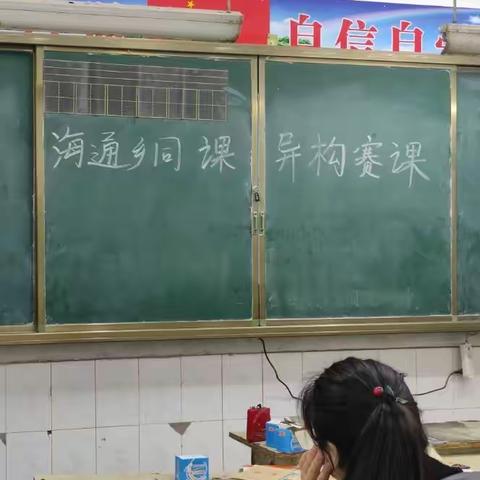 自信 自
海通乡同课 异构赛课